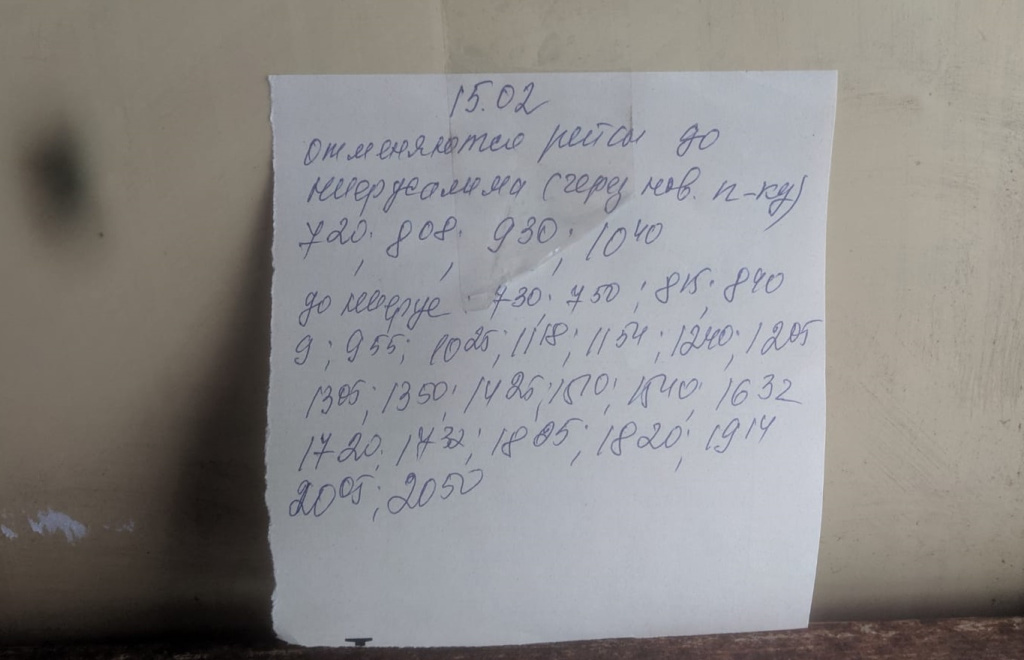 15.02
отменяются рейсы до
ниерусалима (через нов. п-ку)
720; 808; 930; 1040
до ниерус 730; 750; 815; 840
9; 955; 1025; 1118; 1154; 1240; 1205
1305; 1350; 1425; 1510; 1540; 1632
1720; 1732; 1805; 1820; 1914
2005; 2050